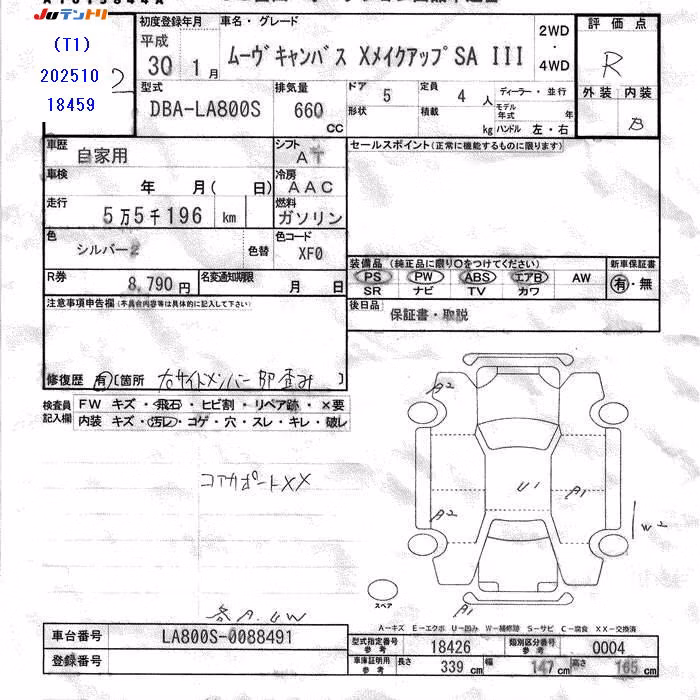 JUテントリ
(T1)
202510
18459
2
初度登録年月
平成
30 1月
車名・グレード
ムーヴキャンバス XメイクアップSA III
2WD
・
4WD
評価点
R
外装 内装
B
型式
DBA-LA800S
排気量
660
cc
ドア 5
形状
定員 4人
積載 kg
ディーラー・並行
モデル年式 年
ハンドル 左・右
車歴
自家用
シフト
AT
車検
年 月( 日)
冷房
AAC
走行
5万5千196 km
燃料
ガソリン
色
シルバー2
色替
色コード
XF0
R券
8,790円
名変通知期限
月 日
セールスポイント(正常に機能するものに限ります)
装備品(純正品に限り○をつけてください)
PS PW ABS エアB AW
SR ナビ TV カワ
新車保証書
有・無
後日品
保証書・取説
注意事項申告欄(不具合内容等は具体的に記入して下さい)
修復歴 有[箇所 右サイドメンバー部歪み ]
検査員
記入欄
FW キズ・飛石・ヒビ割・リペア跡・×要
内装 キズ・汚レ・コゲ・穴・スレ・キレ・破レ
コアサポートXX
各A.UW
A2
A2
U1
A1
W2
A1
スペア
A-キズ E-エクボ U-凹み W-補修跡 S-サビ C-腐食 XX-交換済
車台番号
LA800S-0088491
登録番号
型式指定番号
参考
18426
類別区分番号
参考
0004
車庫証明用
参考
長さ
339 cm
幅
147 cm
高さ
165 cm